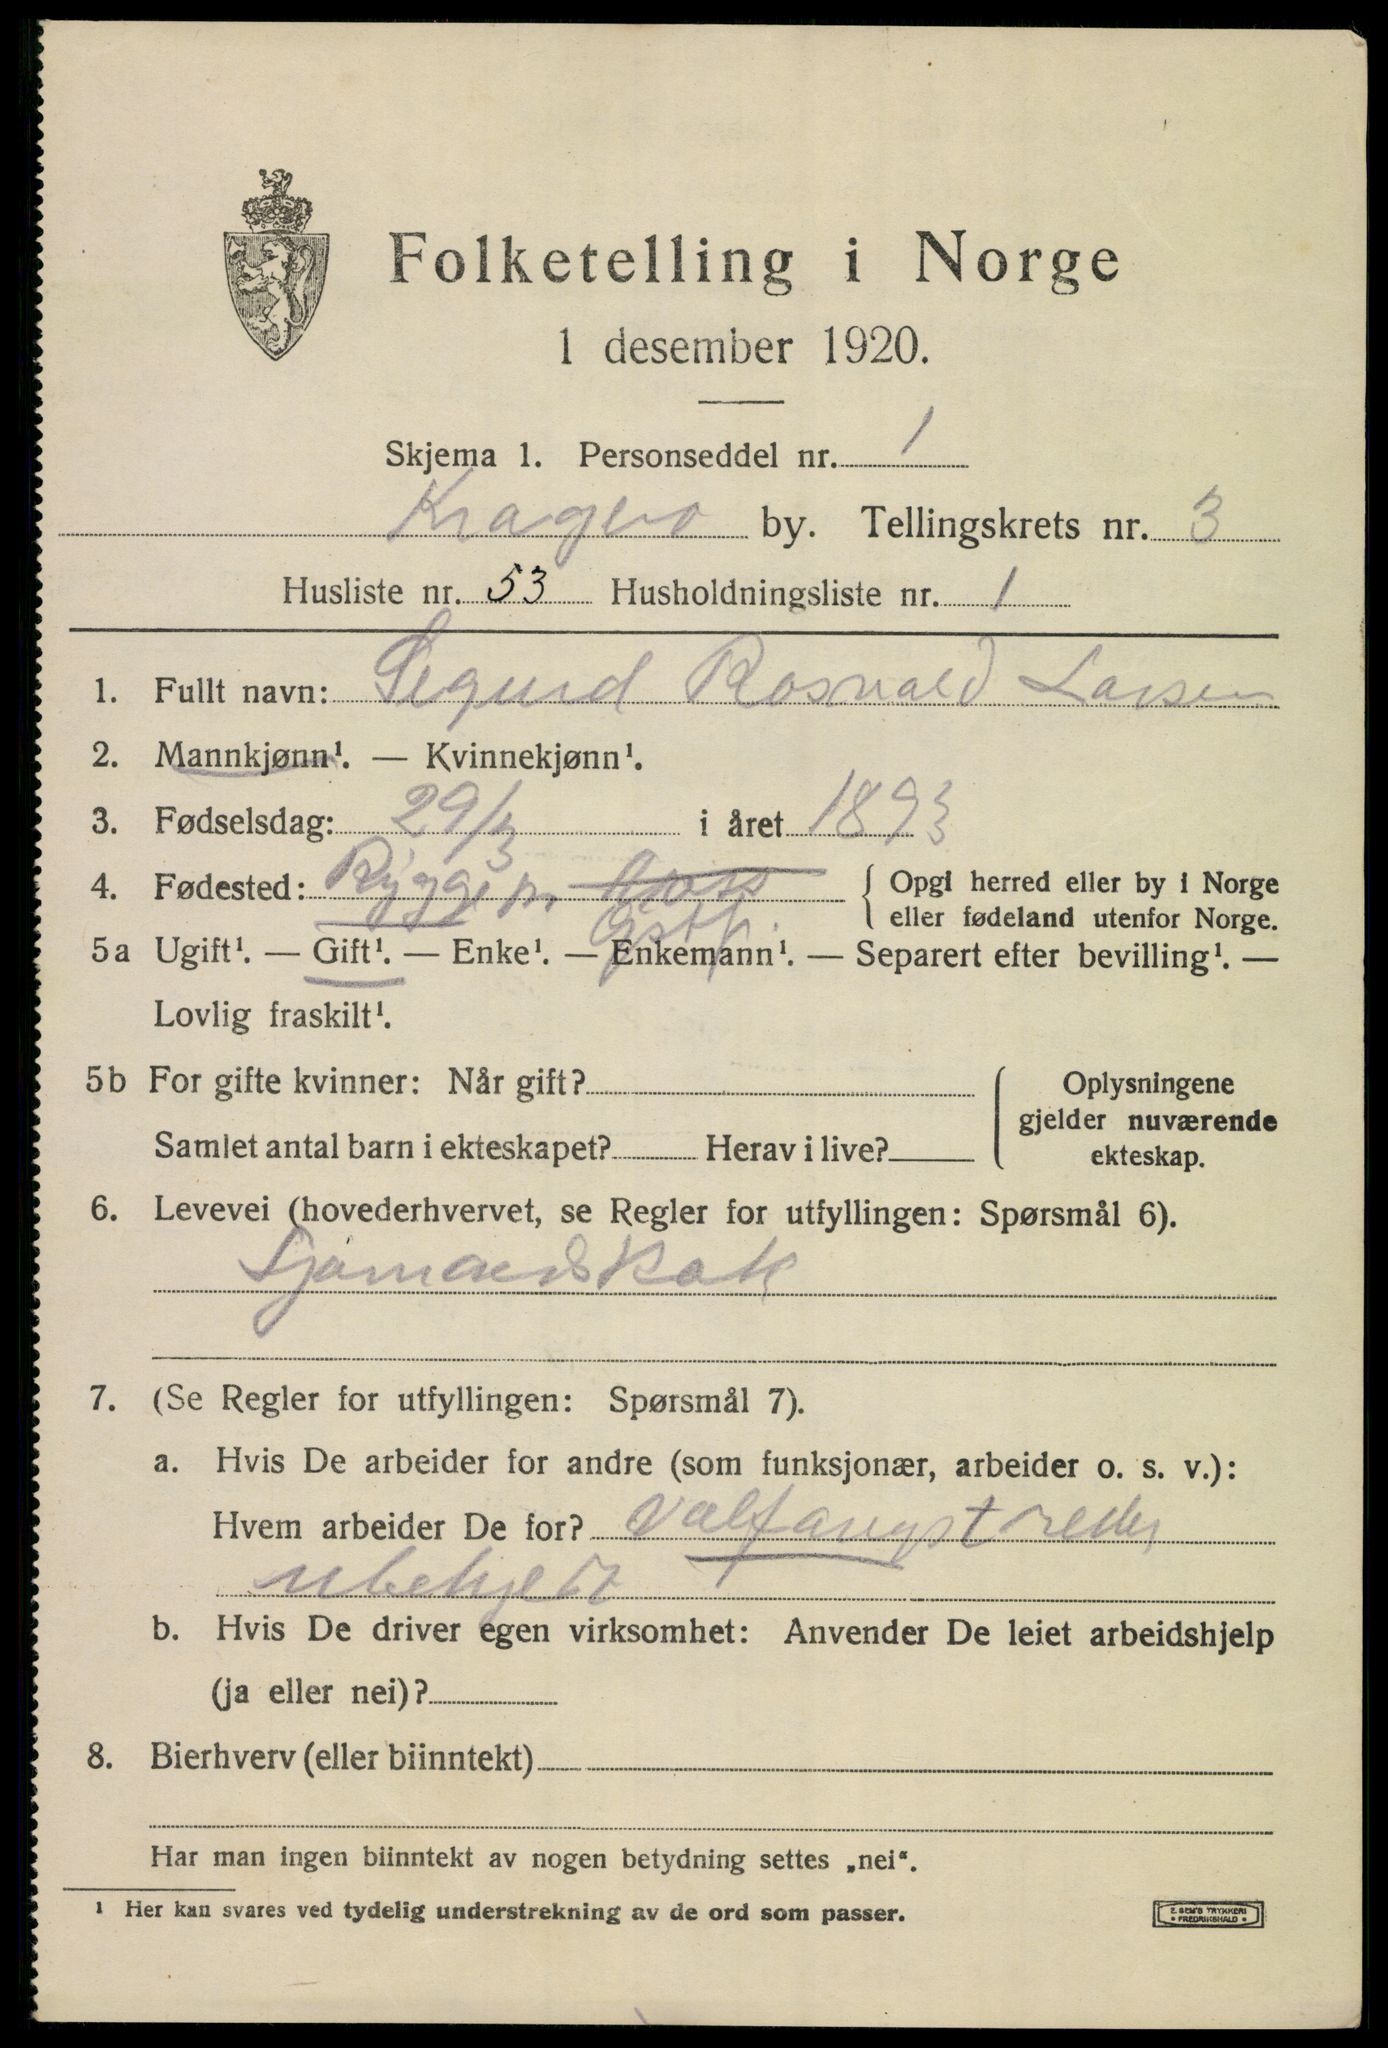 Folketelling i Norge
1 desember 1920.
Skjema 1. Personseddel nr. 1
Kragerø by. Tellingskrets nr. 3
Husliste nr. 53 Husholdningsliste nr. 1
1. Fullt navn: Sigurd Rosvald Larsen
2. Mannkjønn¹. — Kvinnekjønn¹.
3. Fødselsdag: 29/3 i året 1893
4. Fødested: Rygge pr. Moss { Opgi herred eller by i Norge
Østf. eller fødeland utenfor Norge.
5a Ugift¹. — Gift¹. — Enke¹. — Enkemann¹. — Separert efter bevilling¹. —
Lovlig fraskilt¹.
5b For gifte kvinner: Når gift? Oplysningene
gjelder nuværende
Samlet antal barn i ekteskapet? Herav i live? ekteskap.
6. Levevei (hovederhvervet, se Regler for utfyllingen: Spørsmål 6).
Sjømand Kok
7. (Se Regler for utfyllingen: Spørsmål 7).
a. Hvis De arbeider for andre (som funksjonær, arbeider o. s. v.):
Hvem arbeider De for? Valfangstreder
ubekjent
b. Hvis De driver egen virksomhet: Anvender De leiet arbeidshjelp
(ja eller nei)?
8. Bierhverv (eller biinntekt)
Har man ingen biinntekt av nogen betydning settes „nei“.
¹ Her kan svares ved tydelig understrekning av de ord som passer.
E. SEM'S TRYKKERI
• FREDRIKSHALD •